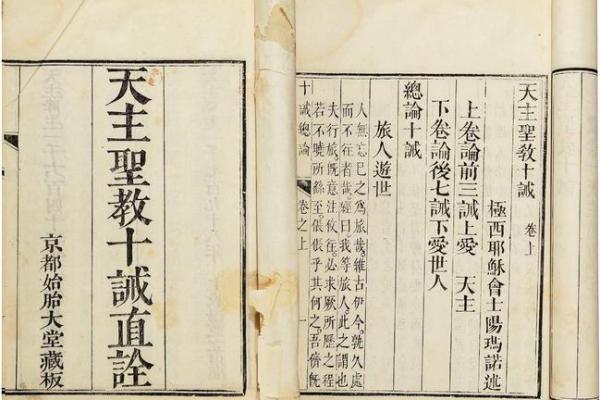 天主聖教十誡直詮
京都始胎大堂藏板
天主聖教十誡 卷上
極西耶穌會士陽瑪諾述
上卷論前三誡上愛 天主
下卷論後七誡下愛世人
總論十誡
旅人遊世
人無忘己之爲旅哉。維古伊今。孰久處
而不往者哉。經曰。我等旅人。此之謂也
夫行旅旣意注攸往。必求厥所歷之程
若不曉所繇至。倀倀乎其何之。吾儕旣
十誡總論 卷之上 一